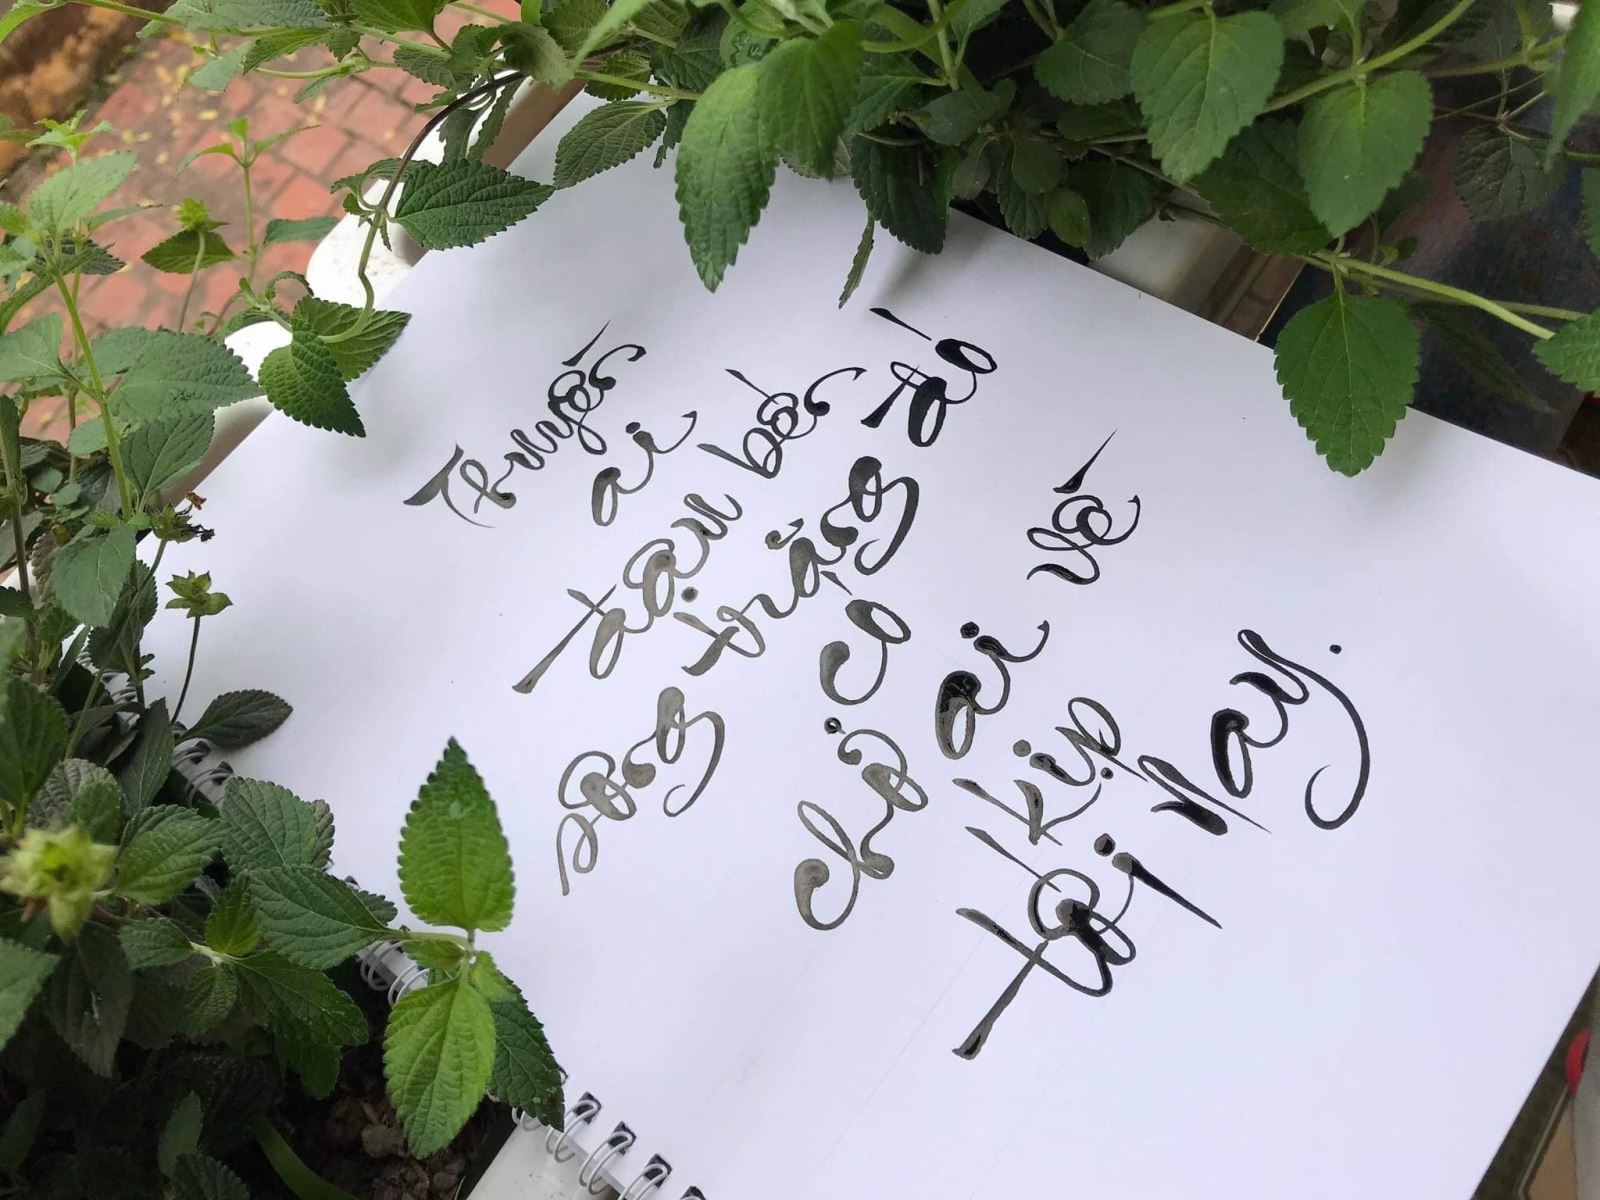 Thuyền
ai
đậu bến
sông trăng đó
có
chở ai về
kịp
tối nay.